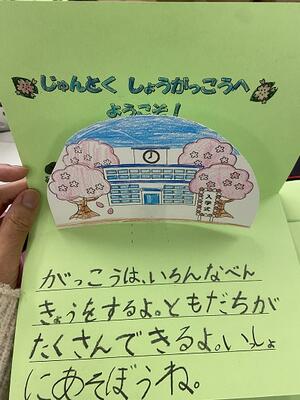 じゅんとく しょうがっこうへ
ようこそ！
入学式
がっこうは、いろんなべん
きょうをするよ。ともだちが
たくさんできるよ。いっしょ
にあそぼうね。